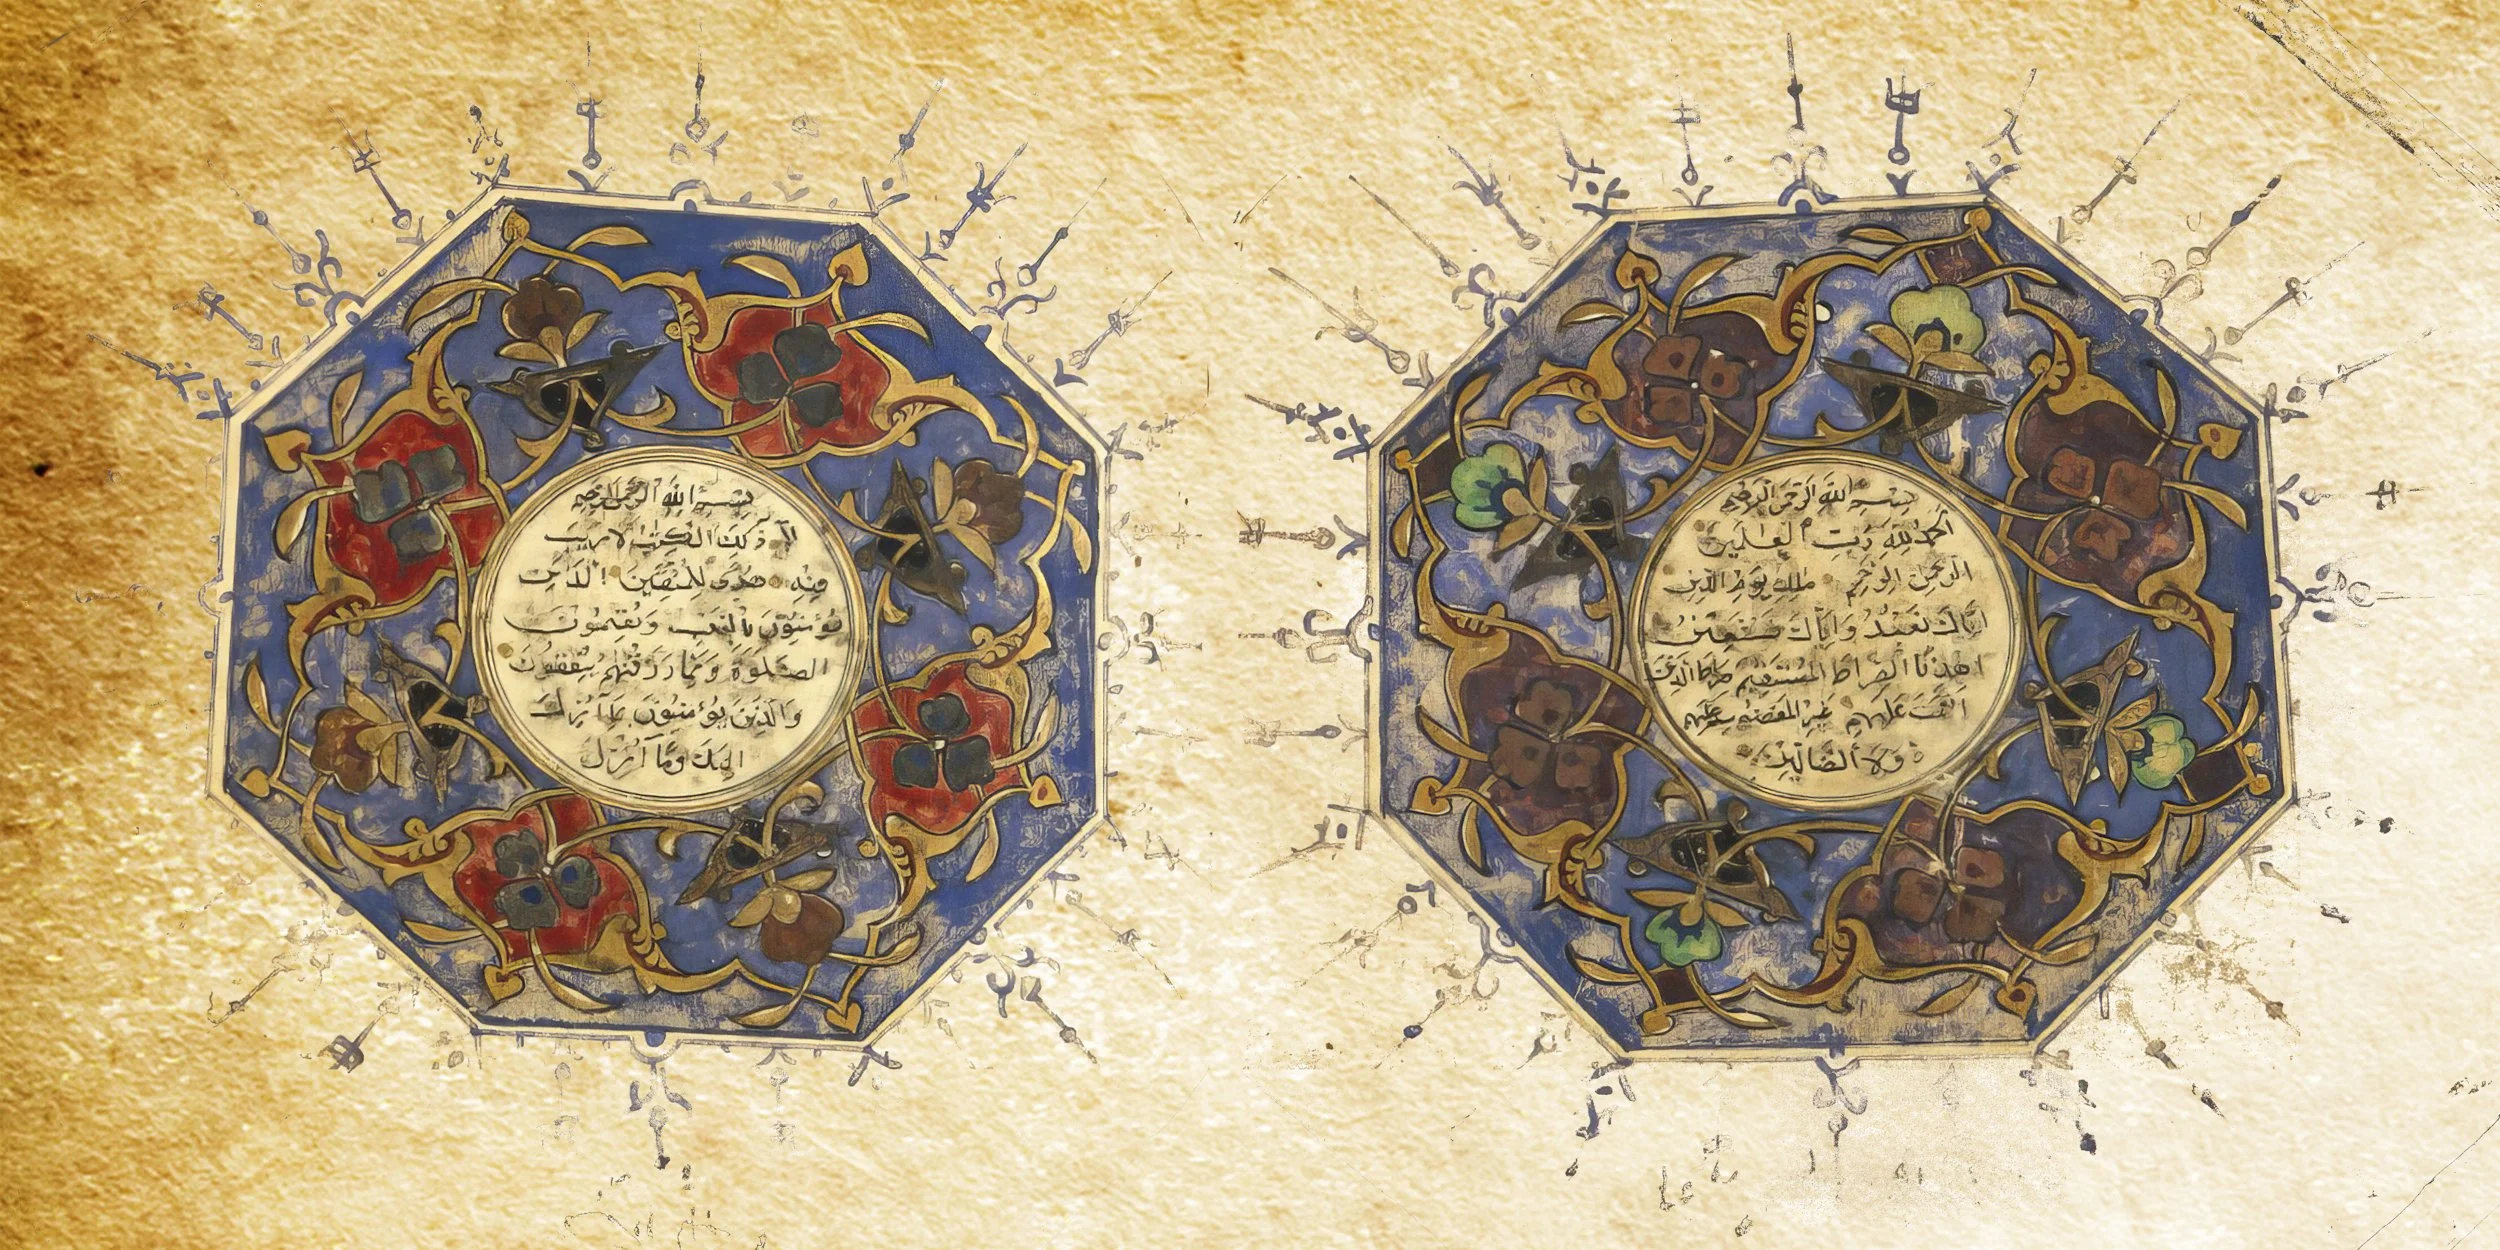 بسم الله الرحمن الرحيم
الحمد لله رب العلمين
الرحمن الرحيم ملك يوم الدين
اياك نعبد واياك نستعين
اهدنا الصراط المستقيم صراط الذين
انعمت عليهم غير المغضوب عليهم
ولا الضالين
بسم الله الرحمن الرحيم
الم ذلك الكتب لا ريب
فيه هدى للمتقين الذين
يؤمنون بالغيب ويقيمون
الصلوة ومما رزقنهم ينفقون
والذين يؤمنون بما انزل
اليك وما انزل